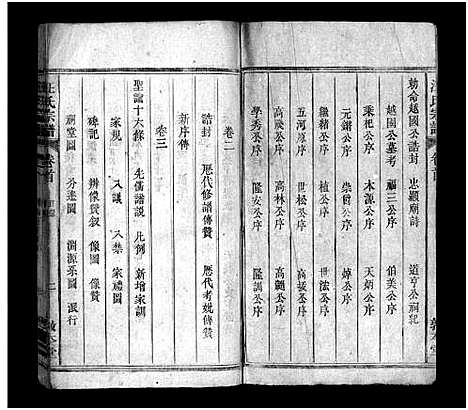 汪氏宗譜
卷首
敦本堂
勅命越國公誥封 忠顯廟詩 道亨公祠記
越國公墓考 福三公序 伯美公序
乘杞公序 木源公序 天炳公序
元鍇公序 崇爵公序 焯公序
億公序 植公序 世法公序
五河公序 世松公序 高振公序
高宸公序 高林公序 高颺公序
學秀公序 隆安公序 隆訓公序
卷二
誥封 歷代修譜傳贊 歷代考妣傳贊
新序傳
卷三
聖諭十六條 先儒譜説 凡例 新增家訓
家規 八議 八禁 家禮圖
碑記 辨像贊叙 像圖 像贊
祠堂圖 分遷圖 淵源系圖 派行
汪氏宗譜
卷首
目錄
二
敦本堂